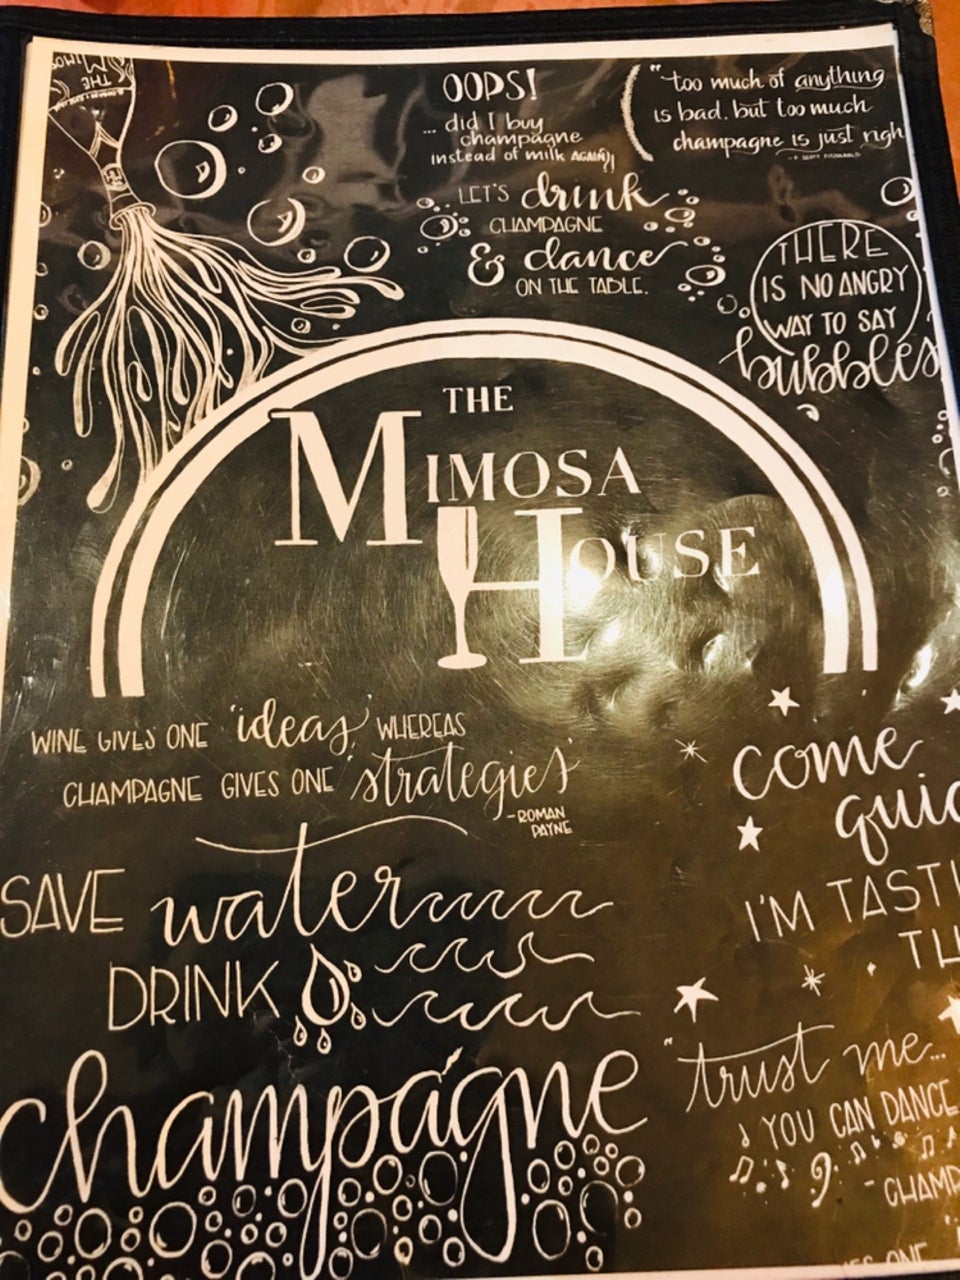 OOPS!
... did I buy
champagne
instead of milk AGAIN?!
"too much of anything
is bad, but too much
champagne is just righ
- F. SCOTT FITZGERALD
LET'S drink
CHAMPAGNE
& dance
ON THE TABLE.
THERE
IS NO ANGRY
WAY TO SAY
bubbles
THE
MIMOSA
HOUSE
WINE GIVES ONE 'ideas,' WHEREAS
CHAMPAGNE GIVES ONE 'strategies'
-ROMAN
PAYNE
SAVE water
DRINK
champagne
come
quic
I'M TASTI
TH
"trust me...
YOU CAN DANCE
- CHAMP